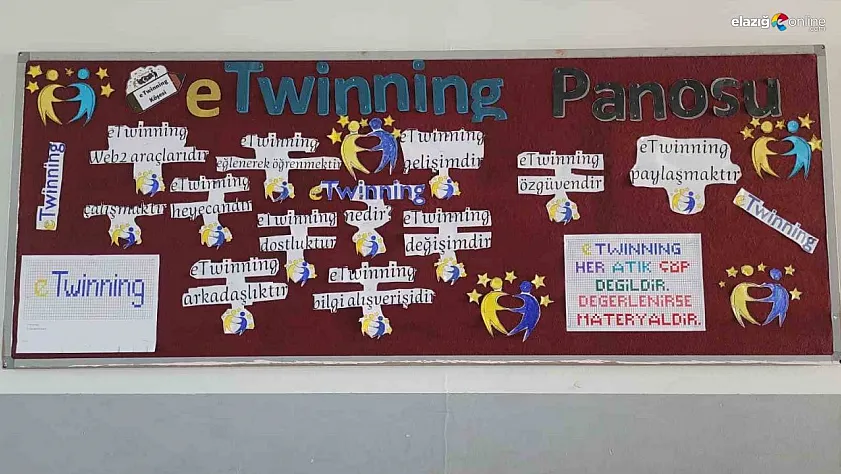 elazığ online
.com
eTwinning Panosu
eTwinning
Köşesi
eTwinning
eTwinning
Web2 araçlarıdır
eTwinning
eğlenerek öğrenmektir
eTwinning
gelişimdir
eTwinning
özgüvendir
eTwinning
paylaşmaktır
çalışmaktır
eTwinning
heyecandır
eTwinning
nedir
eTwinning
dostluktur
eTwinning
değişimdir
eTwinning
eTwinning
arkadaşlıktır
eTwinning
bilgi alışverişidir
eTwinning
eTWINNING
HER ATIK ÇÖP
DEĞİLDİR.
DEĞERLENİRSE
MATERYALDİR.